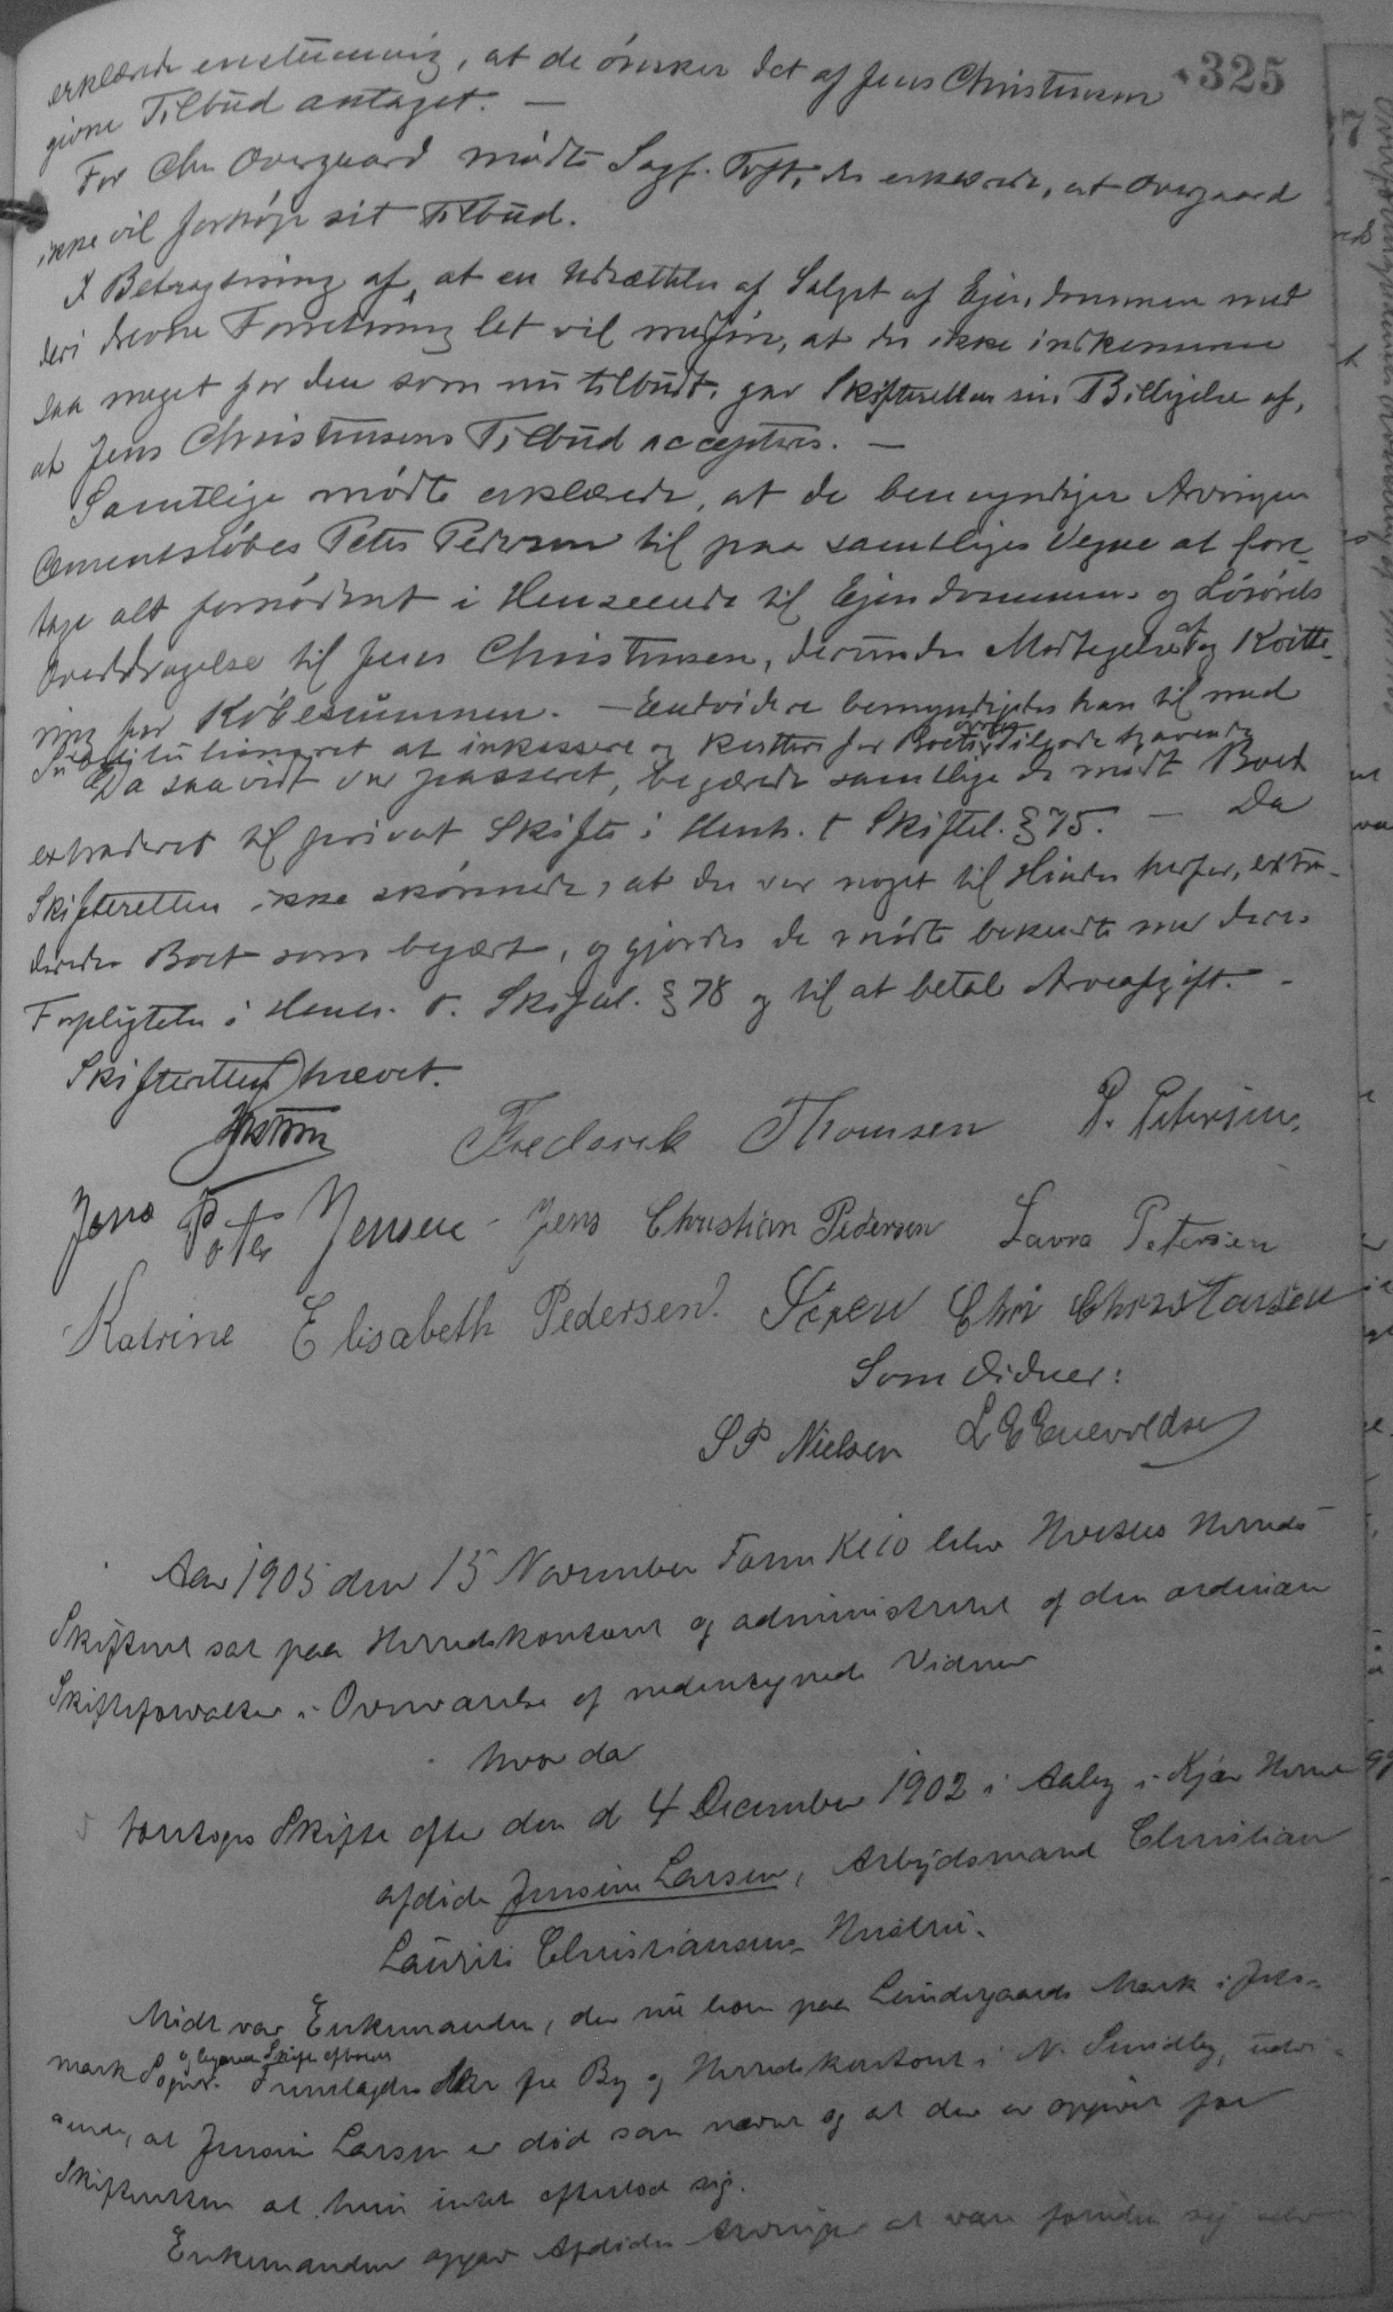 325
erklærede enstemmig, at de ønsker det af Jens Christensen
givne Tilbud antaget. —
For Chr Overgaard mødte Sagf. Toft, der erklærede, at Overgaard
ikke vil forhøje sit Tilbud.
I Betragtning af, at en Udsættelse af Salget af Ejendommen med
deri drevne Forretning let vil medføre, at der ikke indkommer
saa meget for den som nu tilbudt, gav Skifteretten sin Billigelse af,
at Jens Christensens Tilbud accepteres. —
Samtlige mødte erklærede, at de bemyndiger Arvingen
Cementstøber Peter Pedersen til paa samtliges Vegne at fore-
tage alt fornødent i Henseende til Ejendommens og Løsørets
Overdragelse til Jens Christensen, derunder Modtagelse af og Kvitte-
ring for Købesummen. — Endvidere bemyndigedes han til med
Substitutionsret at inkassere og kvittere for Boets øvrige Tilgodehavende
Da saavidt var passeret, begærede samtlige de mødte Boet
extraderet til privat Skifte i Henh. t. Skiftel. § 75. — Da
Skifteretten ikke skønnede, at der var noget til Hinder herfor, extra-
deredes Boet som begært, og gjordes de mødte bekendte med deres
Forpligtelser i Henh. t. Skiftel. § 78 og til at betale Arveafgift. -
Skifteretten hævet.
Frederik Thomsen P. Petersen.
Jens Peter Jensen - Jens Christian Pedersen Laura Petersen
Katrine Elisabeth Pedersen. Søren Chr Christensen
Som Vidner:
S P Nielsen L E Enevoldsen
Aar 1905 den 15 November Form Kl 10 blev Hvetbo Herreds
Skifteret sat paa Herredskontoret og administreret af den ordinære
Skifteforvalter i Overværelse af nedentegnede Vidner
hvor da
foretoges Skifte efter den d 4 December 1902 i Aaby i Kjær Herred
afdøde Jensine Larsen, Arbejdsmand Christian
Laurits Christiansens Hustru.
Mødt var Enkemanden, der nu bor paa Lundergaards Mark i Jets-
mark Sogn og begærede Skifte efter hende. Fremlagdes Attest fra By og Herredskontoret i N. Sundby, udvi-
sende, at Jensine Larsen er død som nævnt og at der er opgivet for
Skifteretten at hun intet efterlod sig.
Enkemanden opgav Afdødes Arvinger at være foruden sig selv